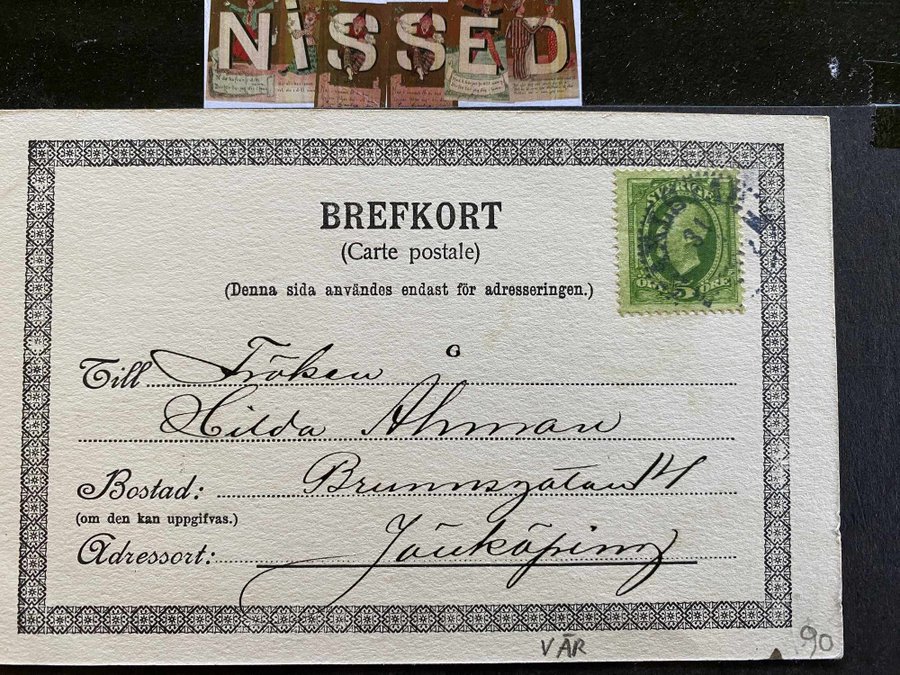 NISSED
BREFKORT
(Carte postale)
(Denna sida användes endast för adresseringen.)
SVERIGE
5 ÖRE
Till Fröken
Hilda Åhman
Bostad: Brunnsgatan 14
(om den kan uppgifvas.)
Adressort: Jönköping
VÅR
90